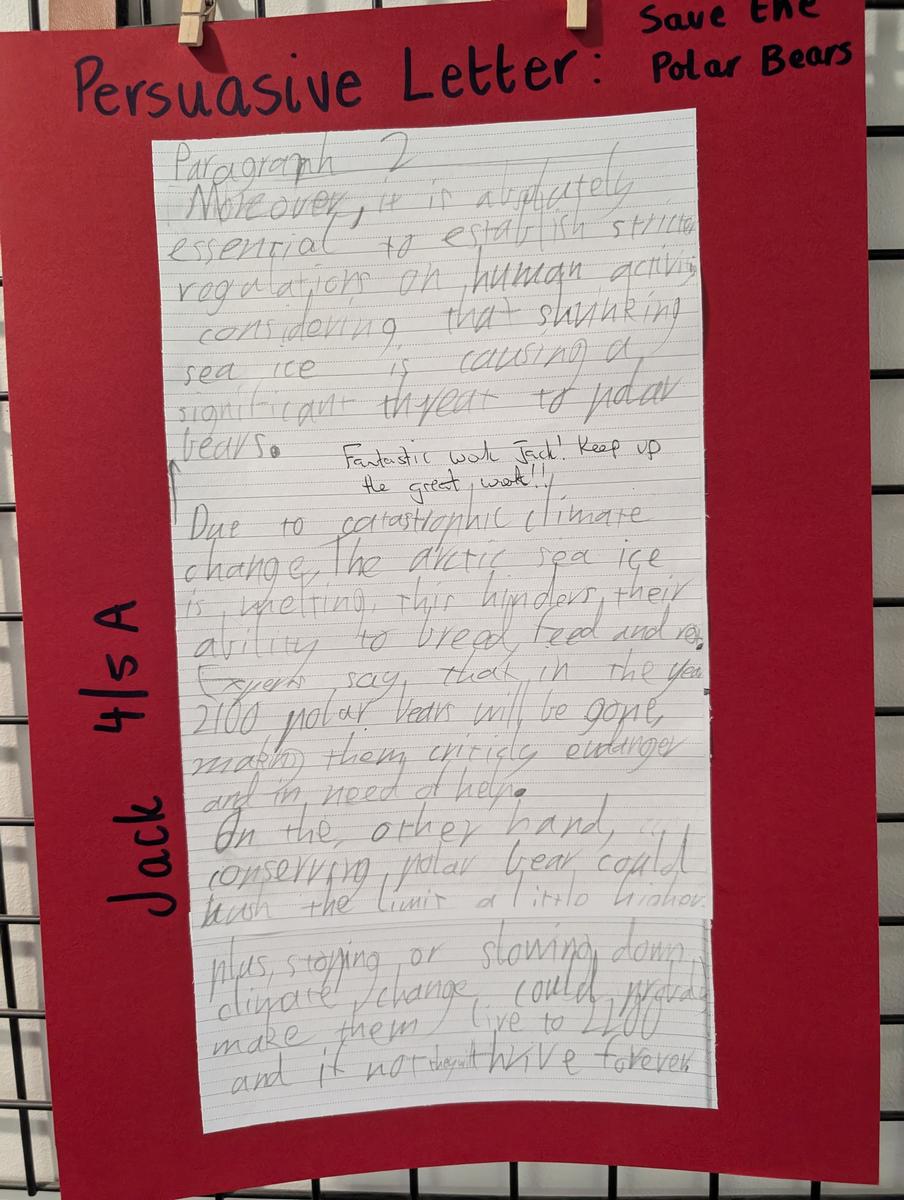 Save the
Polar Bears
Persuasive Letter:
Paragraph 2
Moreover, it is absolutely
essential to establish stricter
regulations on human activity
considering that shrinking
sea ice is causing a
significant threat to polar
bears.
Fantastic work Jack! Keep up
the great work!!
Due to catastrophic climate
change, The arctic sea ice
is melting, this hinders their
ability to breed, feed and
Experts say that in the year
2100 polar bears will be gone,
making them criticly endanger
and in need of help.
On the other hand,
conserving polar bear could
push the limit a little higher.
plus, stopping or slowing down
climate change could probaly
make them live to 2200
and if not they will thrive forever.
Jack 4/5 A